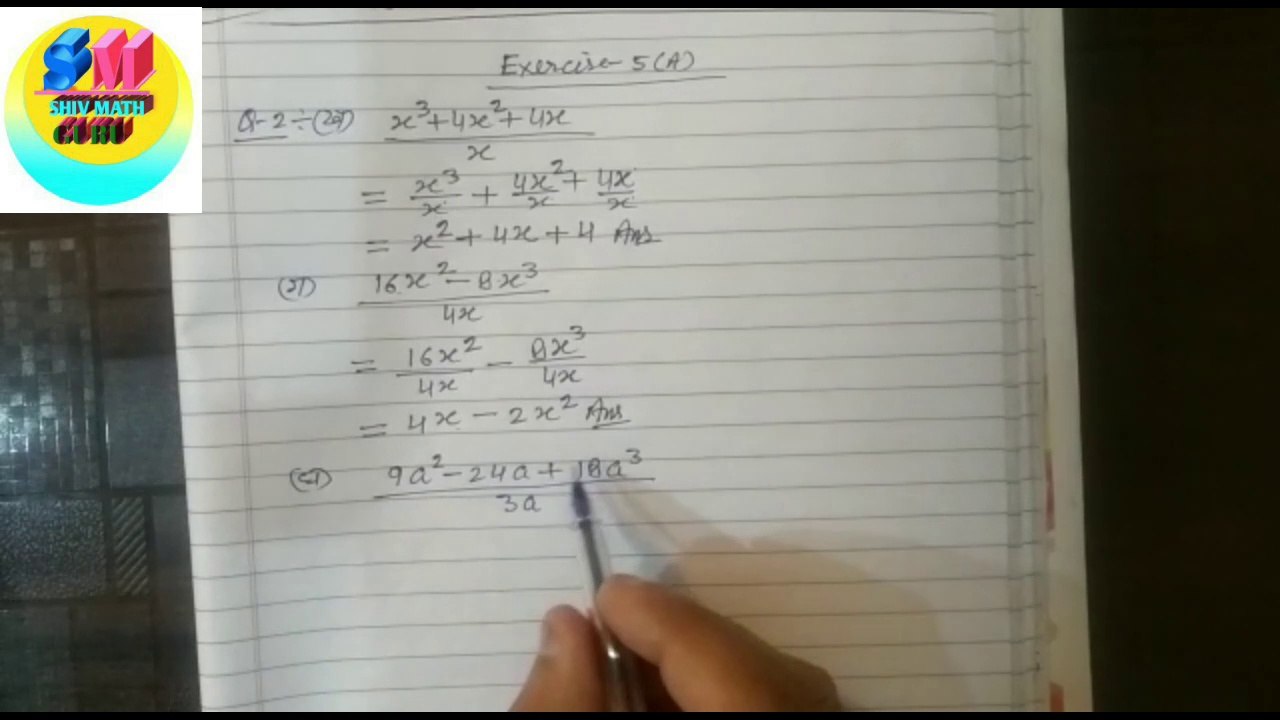 SM
SHIV MATH
GURU
Exercise- 5(A)
Q-2 ÷ (ख) x³+4x²+4x
x
= x³/x + 4x²/x + 4x/x
= x² + 4x + 4 Ans
(ग) 16x² - 8x³
4x
= 16x²/4x - 8x³/4x
= 4x - 2x² Ans
(घ) 9a² - 24a + 18a³
3a